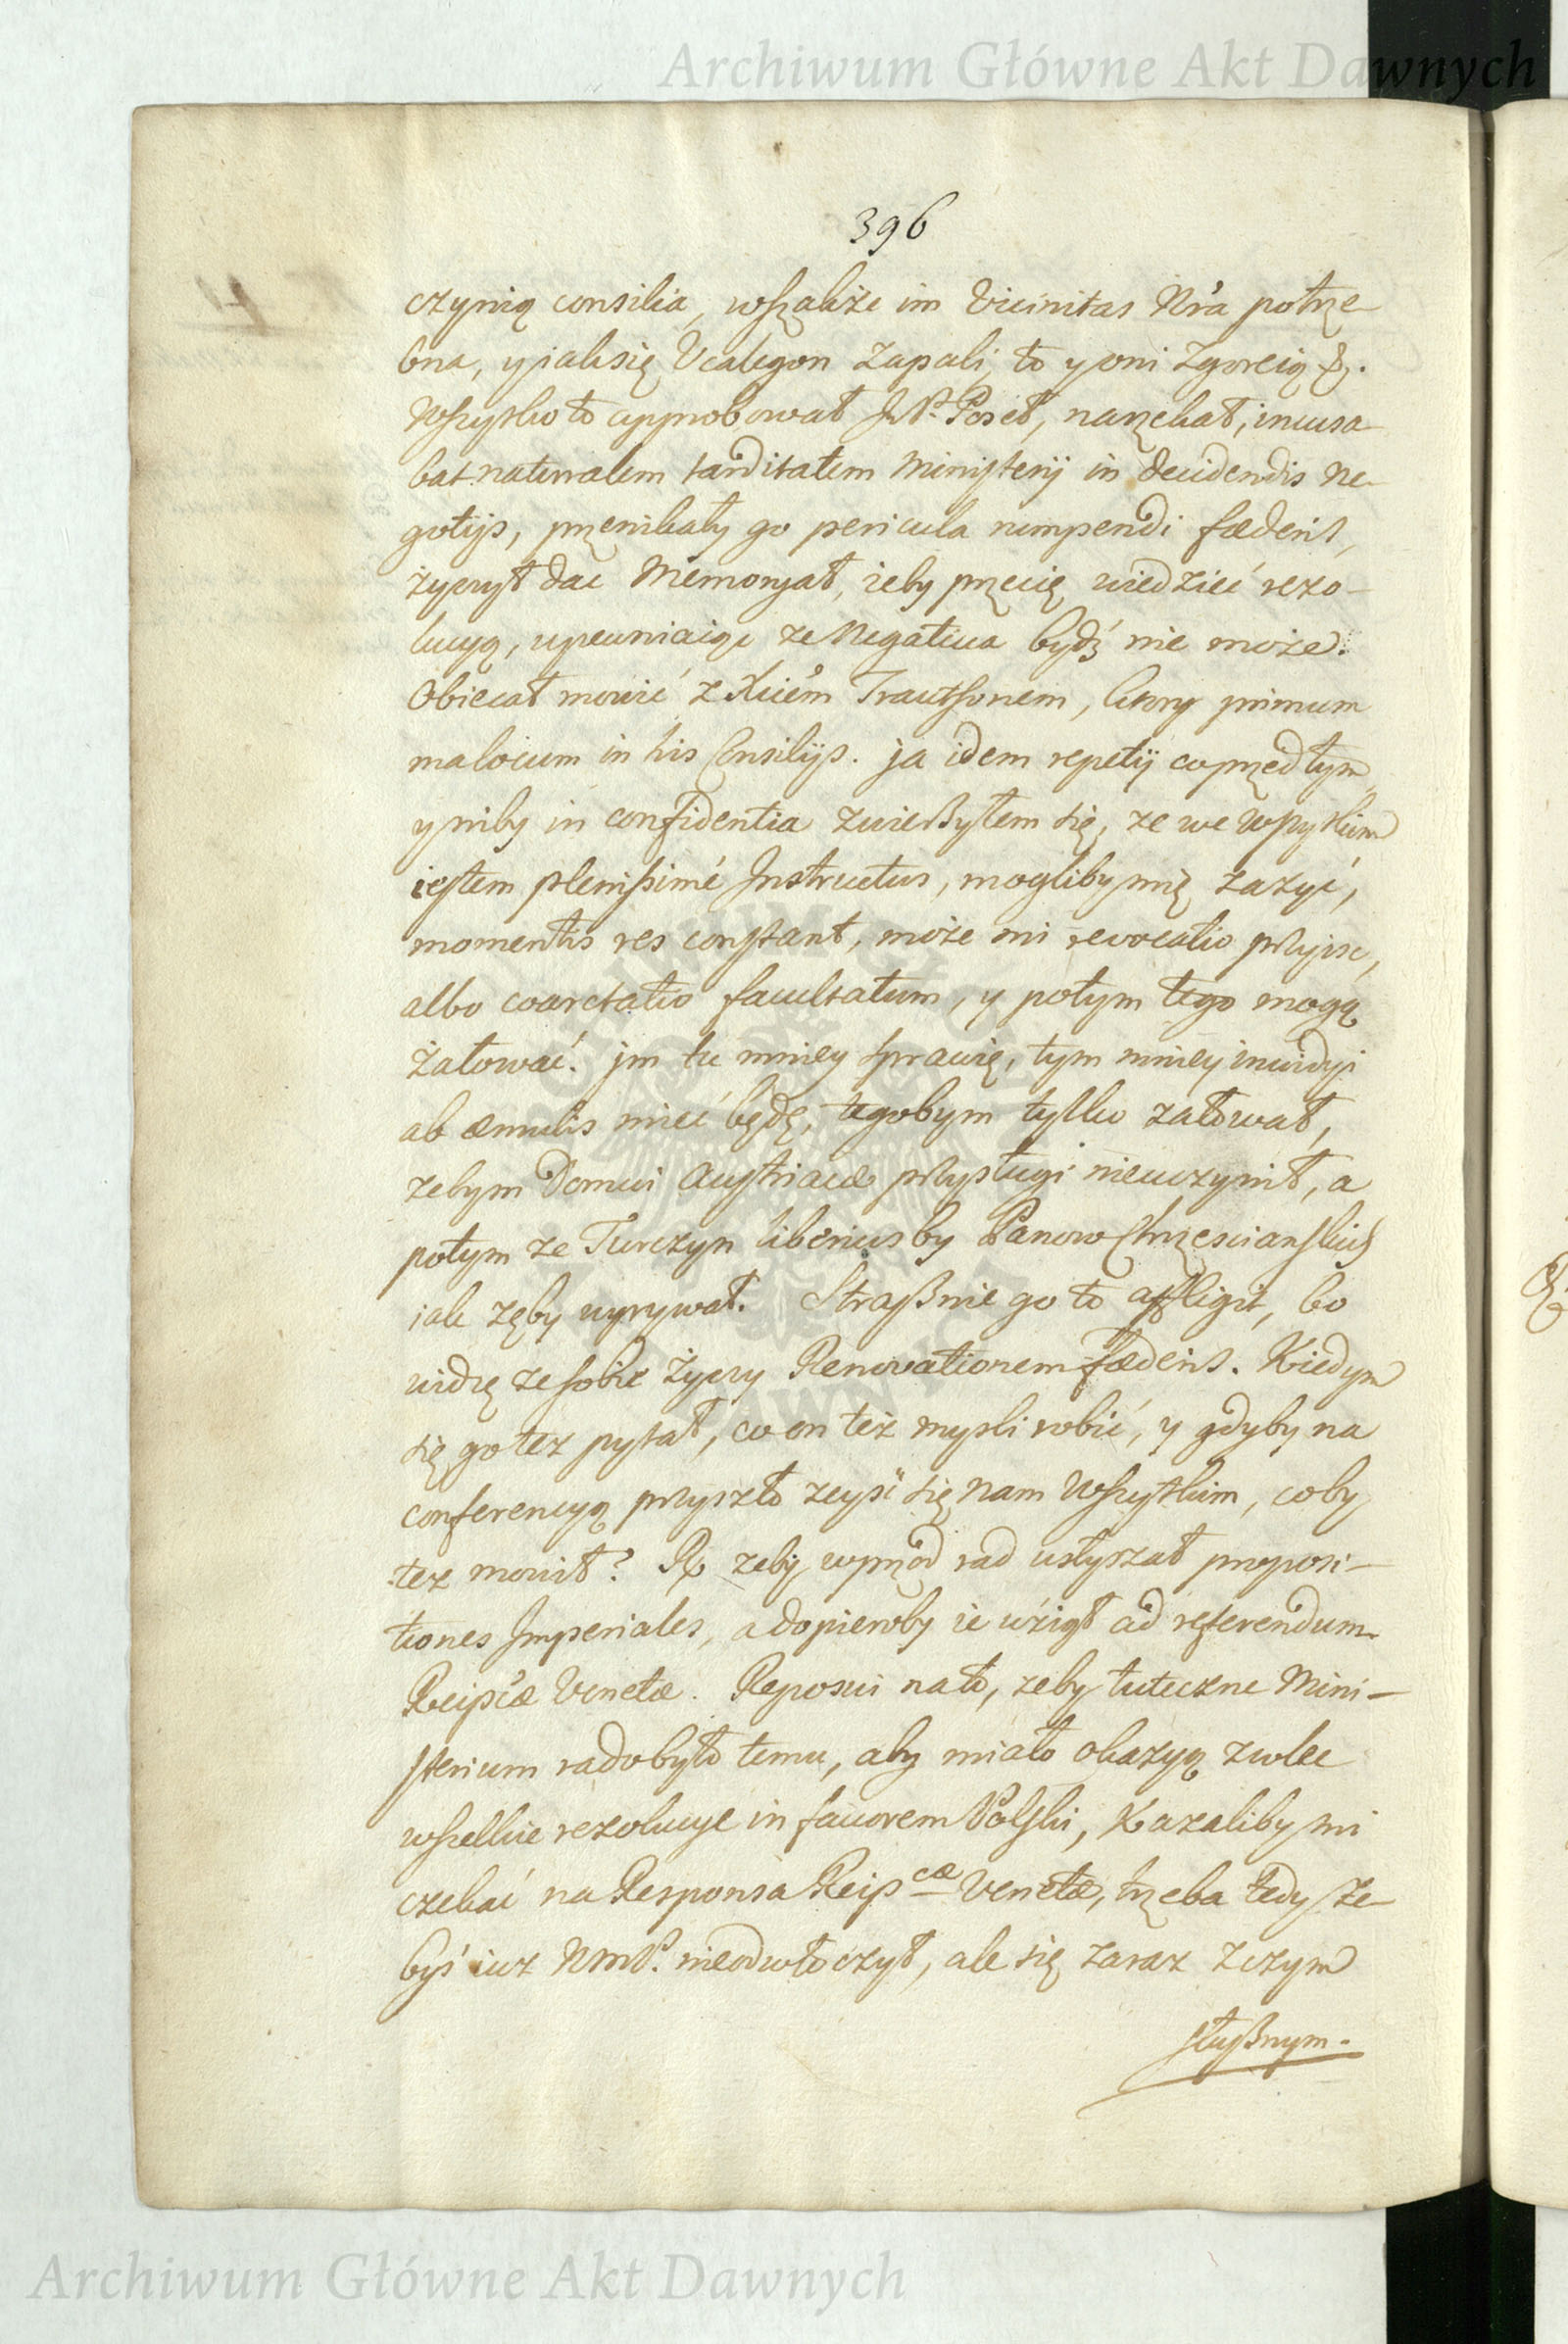 Archiwum Główne Akt Dawnych
396
czynią consilia, wszakże im Vicinitas Nr̃a potrze-
bna, y jak się Vcalegon zapali, to y oni zgoreią &.
Wszytko to approbował JP. Poseł, narzekał, incusa
bat naturalem tarditatem Ministerij in decidendis Ne-
gotijs, przenikały go pericula rumpendi fœderis,
życzył dac Memoryał, żeby przecię wiedzieć rezo-
lucyą, upewniaiąc ze Negatiua bydź nie może.
Obiecał mowić z Xciem Trautsonem, ktory primum
ma locum in his Consilijs. ja idem repetij co przed tym
y niby in confidentia zwierßyłem się, ze we wszytkim
iestem plenissimé Instructus, mogliby mię zazyć,
momentis res constant, może mi revocatio przyisc,
albo coarctatio facultatum, y potym tego mogą
żałować. jm tu mniey sprawię, tym mniey inuidyi
ab æmulis mieć będę, tegobym tylko załował,
zebym Domui Austriacæ przysługi nieuczynił, a
potym ze Turczyn liberius by Panow Chrzescianskich
iak zęby wyrywał. Straßnie go to affligit, bo
widzę ze sobie życzy Renovationem fœderis. Kiedym
się go tez pytał, co on też mysli robić, y gdyby na
conferencyą przyszło zeyść się nam Wszytkim, coby
tez mowił? Rx zeby wprzod rad usłyszał proposi-
tiones Imperiales, a dopieroby ie wźiął ad referendum
Reipcæ Venetæ. Reposui na to, zeby tuteczne Mini-
sterium rado było temu, aby miało okazyą zwlec
wszelkie rezolucye in fauorem Polski, Kazaliby mi
czekać na Responsa Reipcæ Venetæ, trzeba tedy ze-
byś iuz WMP. nieodwłoczył, ale się zaraz z czym
słußnym.
Archiwum Główne Akt Dawnych